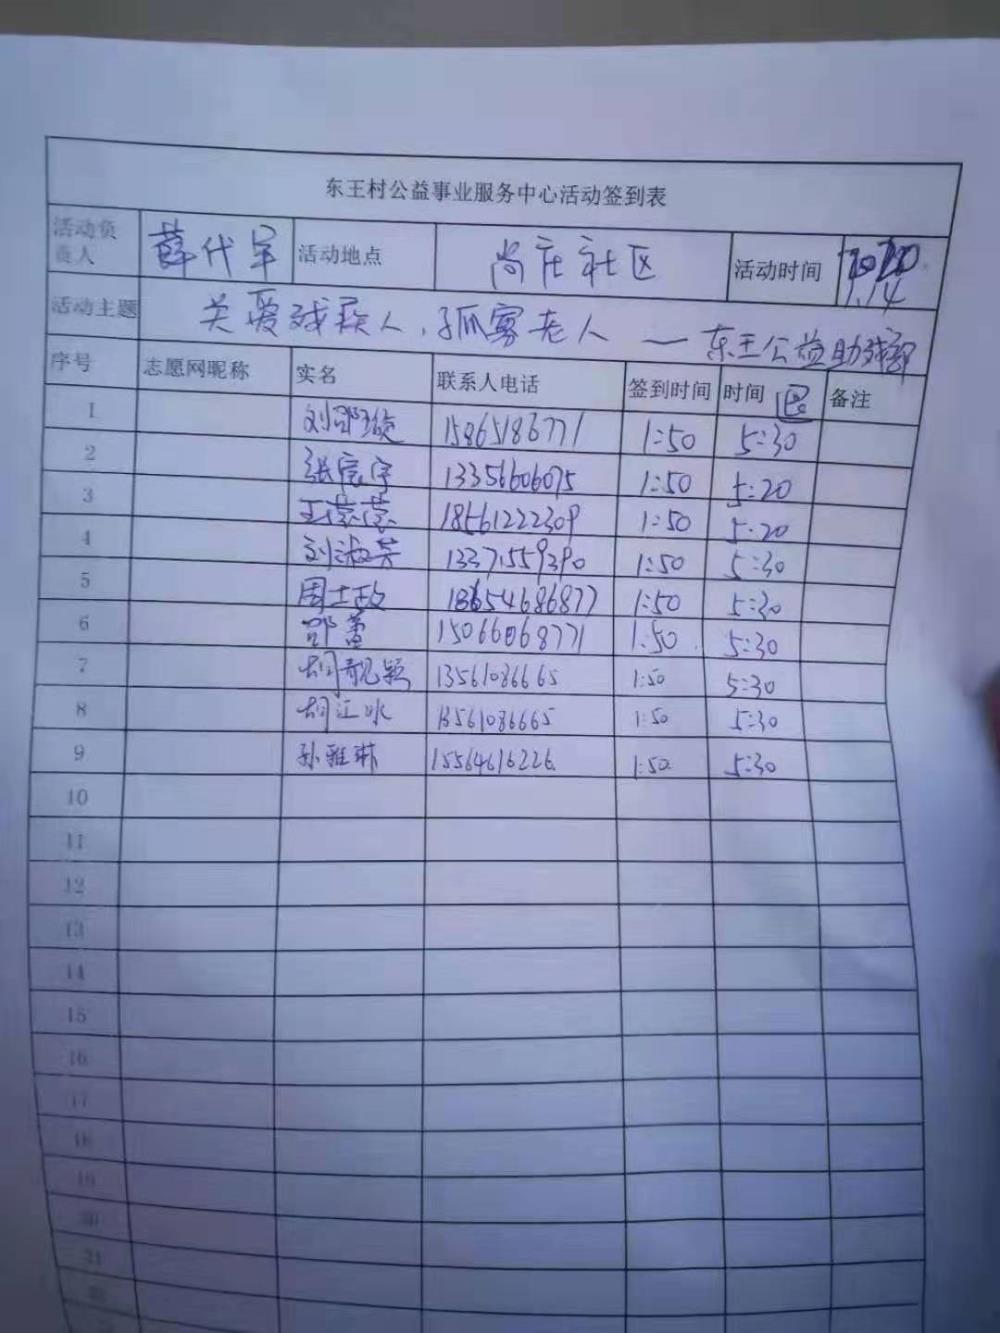 东王村公益事业服务中心活动签到表
活动负责人 薛代军 活动地点 尚庄社区 活动时间 2020. 1.14
活动主题 关爱残疾人、孤寡老人 — 东王公益助残部
序号 志愿网昵称 实名 联系人电话 签到时间 时间 退 备注
1 刘邵璇 15865186771 1:50 5:30
2 张宸宇 13356606075 1:50 5:20
3 18561222309 1:50 5:20
4 刘淑芳 13371559390 1:50 5:30
5 周士政 18654686877 1:50 5:30
6 邵蕾 15066068771 1:50 5:30
7 胡靓颖 13561086665 1:50 5:30
8 胡江冰 13561086665 1:50 5:30
9 孙雅琳 15564616226 1:50 5:30
10
11
12
13
14
15
16
17
18
19
20
21